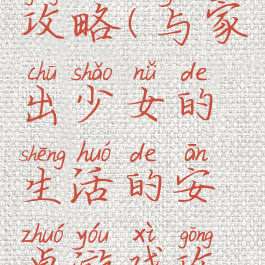 攻略(与家
chū shǎo nǚ de
出少女的
shēng huó de ān
生活的安
zhuó yóu xì gōng
卓游戏攻